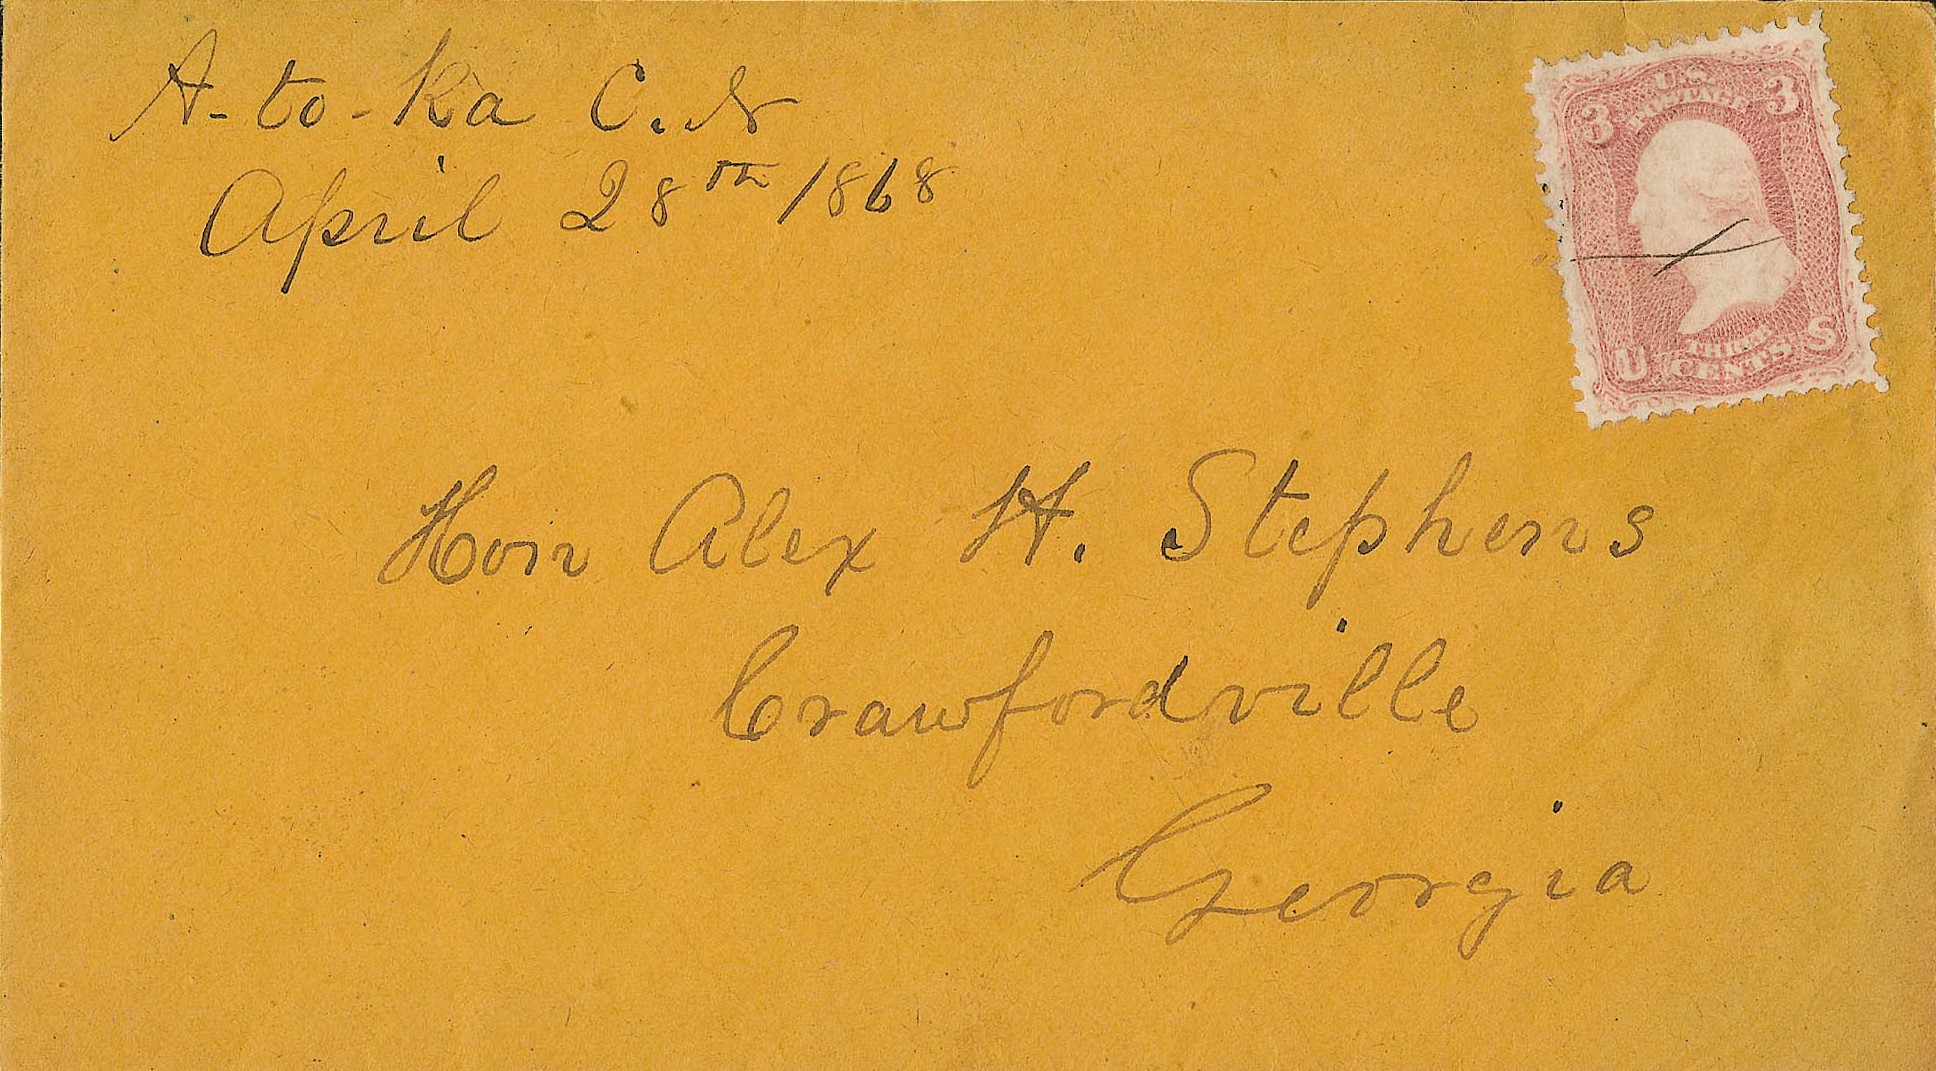 A-to-Ka C.N
April 28th 1868
3 U.S. POSTAGE 3
U THREE CENTS S
Hon Alex H. Stephens
Crawfordville
Georgia